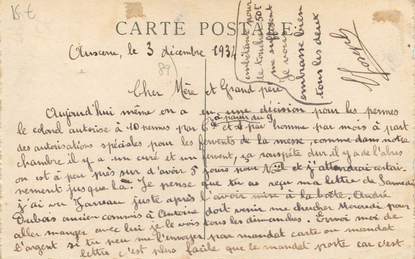 15 €
CARTE POSTALE
Auxerre, le 3 décembre 193
89
Cher Mère et Grand père
Aujourd'hui même on a eu une décision pour les permes
à partir du 9
le colonel autorise à 10 permes par et il par homme par mois à part
des autorisations spéciales pour les fervents de la messe, comme dans notre
chambre il y a un curé et un fervent, ça rouspète dur il y a de l'abus
on est à peu près sur d'avoir 5 jours pour et j'attendrai certai-
nement jusque là. Je pense que tu as reçu ma lettre de Samedi
j'ai vu juste après l'avoir mise à la boîte. André
Dubois ancien commis à Antoine doit venir me chercher pour
aller manger avec lui je le vois tous les dimanches. Envoi moi de
l'argent si tu peux me l'envoyer par mandat carte ou mandat
lettre c'est plus facile que le mandat poste car c'est
embêtant pour
le toucher 50f
me suffisent
Je vous
embrasse bien
tous les deux
Joseph